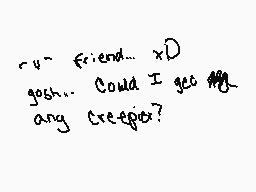 -u- friend... xD
gosh... Could I get
any creepier?